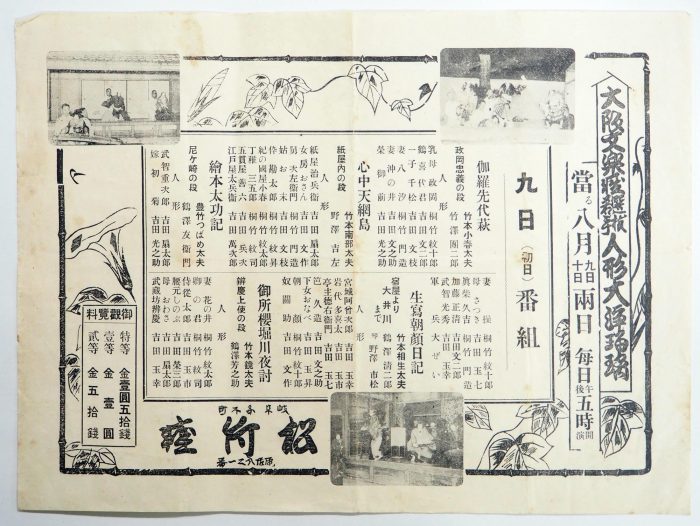 大阪文樂座選抜人形大浄瑠璃
當る八月九日十日兩日毎日午後五時開演
九日(初日)番組
伽羅先代萩
政岡忠義の段
竹本小春太夫
竹澤團二郎
人形
乳母政岡 桐竹紋十郎
鶴喜代君 吉田文二郎
一子千松 吉田文枝
妻八汐 桐竹門造
妻沖の井 吉田文作
榮御前 吉田文枝
心中天網島
紙屋内の段
竹本南部太夫
野澤吉左
人形
紙屋治兵衛 吉田扇太郎
女房おさん 吉田文作
舅次左衛門 桐竹門造
姑お末 吉田文枝
伜勘太郎 桐竹紋太郎
紀の國屋小春 桐竹紋太郎
丁稚三五郎 桐竹紋司
五貫屋善六 吉田兵次
江戸屋太兵衛 吉田萬次郎
繪本太功記
尼ケ崎の段
豊竹つばめ太夫
鶴澤友衛門
人形
武智重次郎 吉田扇太郎
嫁初菊 吉田光之助
妻操 桐竹紋十郎
母さつき 吉田玉七
眞柴久吉 桐竹門造
加藤正清 吉田文二郎
武智光秀 吉田玉幸
軍兵 大ぜい
生寫朝顔日記
宿屋より大井川まで
竹本相生太夫
鶴澤清二郎
琴 野澤市松
人形
宮城阿曾次郎 吉田玉幸
岩代多喜太 吉田玉市
亭主德右衛門 吉田玉七
笠久造 吉田文之助
下女おなべ 吉田玉昇
朝顔 桐竹紋十郎
奴關助 吉田文作
御所櫻堀川夜討
辨慶上使の段
竹本錣太夫
鶴澤芳之助
人形
妻花の井 桐竹紋太郎
卿の君 桐竹紋司
侍從太郎 吉田玉市
腰元しのぶ 吉田榮三郎
母おわさ 吉田扇太郎
武蔵坊辨慶 吉田玉幸
御觀覽料
特等 金壹圓五拾錢
壹等 金壹圓
貳等 金五拾錢
岐阜
松竹座